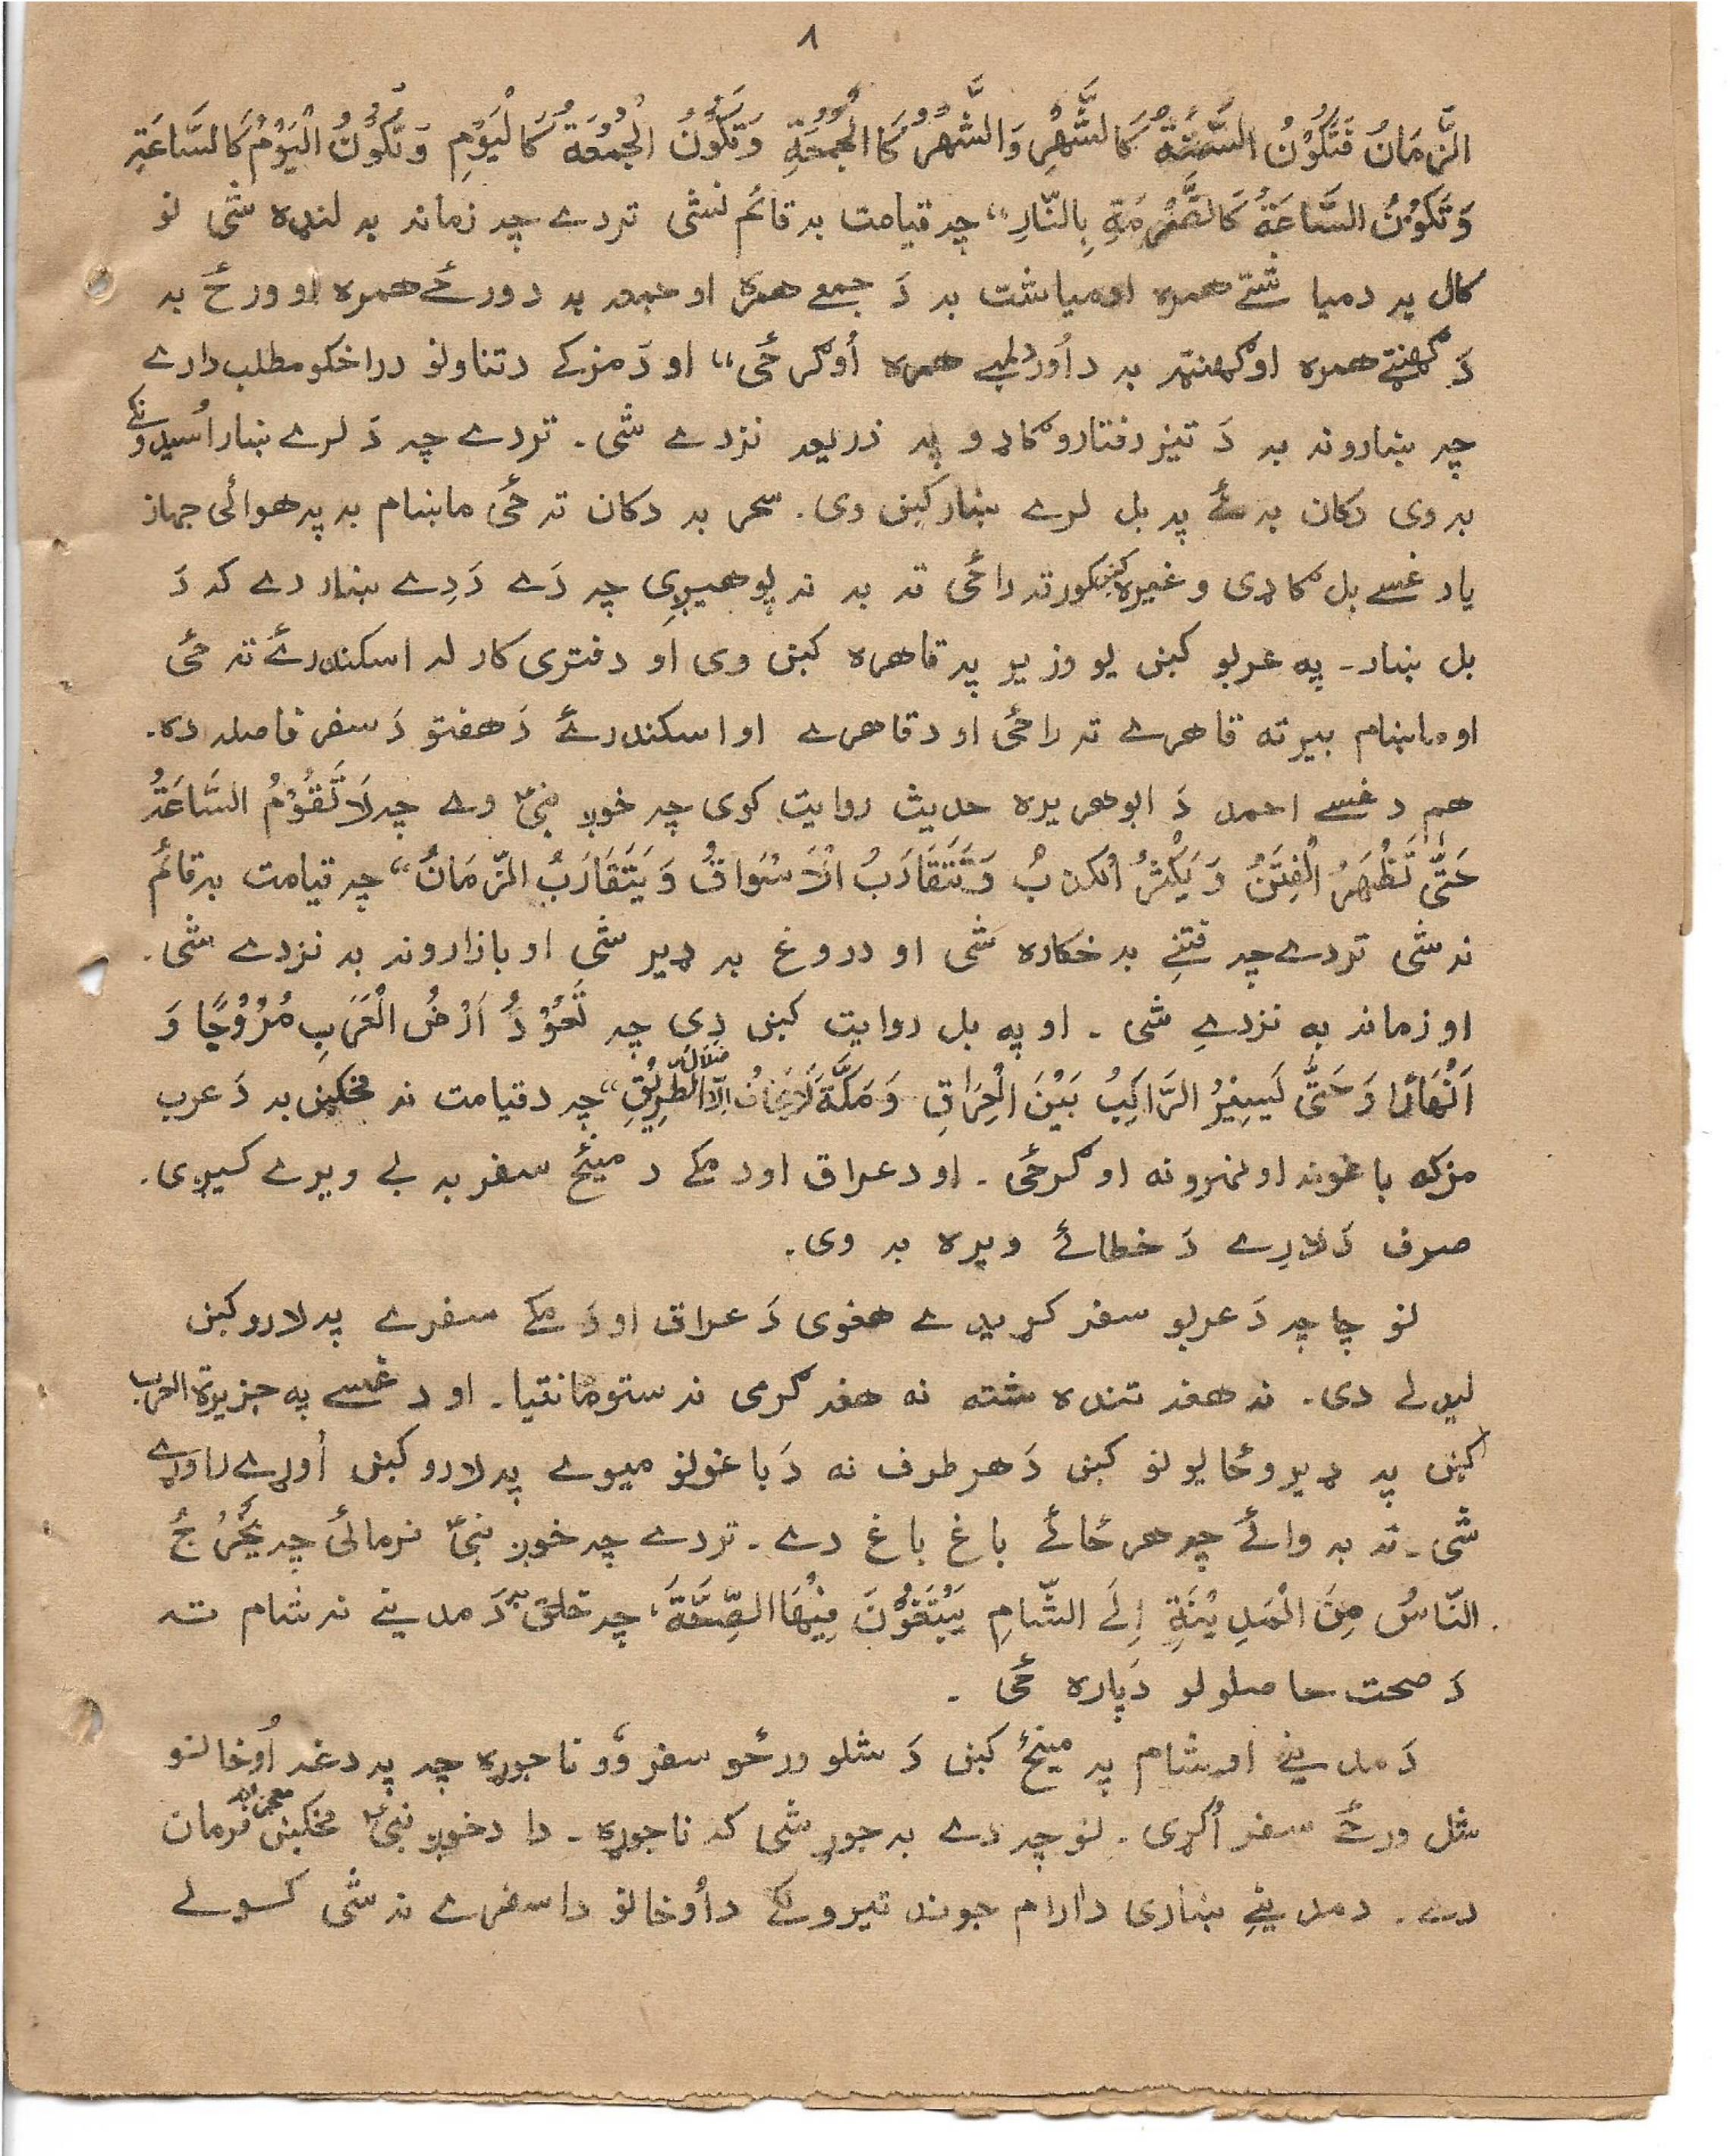 ۸
الزَّمَانُ فَتَكُوْنُ السَّنَةُ كَالشَّهْرِ وَالشَّهْرُ كَا الْجُمُعَةِ وَتَكُوْنُ الْجُمُعَةُ كَالْيَوْمِ وَتَكُوْنُ الْيَوْمُ كَالسَّاعَةِ
وَتَكُوْنُ السَّاعَةُ كَالضَّرْمَةِ بِالنَّارِ“ چہ قیامت بہ قائم نشی تردے چہ زمانہ بہ لنډه شی نو
کال بہ دمیا شتے همره اومیاشت بہ دَ جمعے همره او جمعہ بہ د ورځے همره او ورځ بہ
دَ ګهنټے همره او ګهنټہ بہ د اُور دلمبے همره اُوګرځی“ او دَ مزکے دتناولو دراخکو مطلب دارے
چہ ښارونہ بہ دَ تیز رفتارو ګاډو پہ ذریعہ نزدے شی۔ تردے چہ دَ لرے ښار اُسیدونکے
بہ وی دکان بہ ئے پہ بل لرے ښار کښ وی۔ سحر بہ دکان تہ ځی ماښام بہ پہ هوائی جهاز
یاد غسے بل ګاډی وغیره کښ کور تہ راځی تہ بہ نہ پوهیږی چہ دَے دَدِے ښار دے کہ دَ
بل ښار۔ په عربو کښ یو وزیر پہ قاهره کښ وی او دفتری کار لہ اسکندرۓ تہ ځی
او ماښام بیرته قاهرے تہ راځی او د قاهرے او اسکندرۓ دَ هفتو دَ سفر فاصلہ ده۔
هم دغسے احمد دَ ابوهریره حدیث روایت کوی چہ خوږ نبیؐ وے چہ لَا تَقُوْمُ السَّاعَةُ
حَتّٰى تَظْهَرَ الْفِتَنُ وَيَكْثُرُ الْكَذِبُ وَتَتَقَارَبُ الْاَسْوَاقُ وَيَتَقَارَبُ الزَّمَانُ“ چہ قیامت بہ قائم
نہ شی تردے چہ فتنے بہ خکاره شی او دروغ بہ ډیر شی او بازارونہ بہ نزدے شی۔
او زمانہ به نزدے شی۔ او په بل روایت کښ دی چہ تَعُوْدُ اَرْضُ الْعَرَبِ مُرُوْجًا وَ
اَنْهَارًا وَحَتّٰى يَسِيْرُ الرَّاكِبُ بَيْنَ الْعِرَاقِ وَمَكَّةَ لَا يَخَافُ اِلَّا ضَلَالَ الطَّرِيْقِ“ چہ دقیامت نہ مخکښ بہ دَ عرب
مزکه باغونہ او نهرونه اوګرځی۔ او د عراق اود مکے د مینځ سفر بہ بے ویرے کیږی۔
صرف دَ لارے دَ خطائے ویره بہ وی۔
نو چا چہ دَ عربو سفر کړیدے هغوی دَ عراق او دَ مکے سفرے پہ لارو کښ
لیدلے دی۔ نہ هغہ تنده شته نه هغہ ګرمی نہ ستومانتیا۔ او دغسے په جزیرة العرب
کښ پہ ډیرو ځایونو کښ دَ هر طرف نه دَ باغونو میوے پہ لارو کښ اُوړے راوړے
شی۔ تہ بہ وائے چہ هر ځائے باغ باغ دے۔ تردے چہ خوږ نبیؐ فرمائی چہ يَخْرُجُ
النَّاسُ مِنَ الْمَدِيْنَةِ اِلَى الشَّامِ يَبْتَغُوْنَ فِيْهَا الصِّحَّةَ، چہ خلق بہ دَ مدینے نہ شام تہ
دَ صحت حاصلولو دَپاره ځی۔
دَ مدینے او شام پہ مینځ کښ دَ شلو ورځو سفر وُو ناجوړه چہ پہ دغہ اُوخانو
شل ورځے سفر اُکړی۔ نو چہ دے بہ جوړ شی کہ ناجوړه۔ دا دخوږ نبیؐ مخکښ معجزانہ فرمان
دے۔ دمدینے ښاری دارام جوند تیرونکے د اُوخانو دا سفرے نہ شی کولے